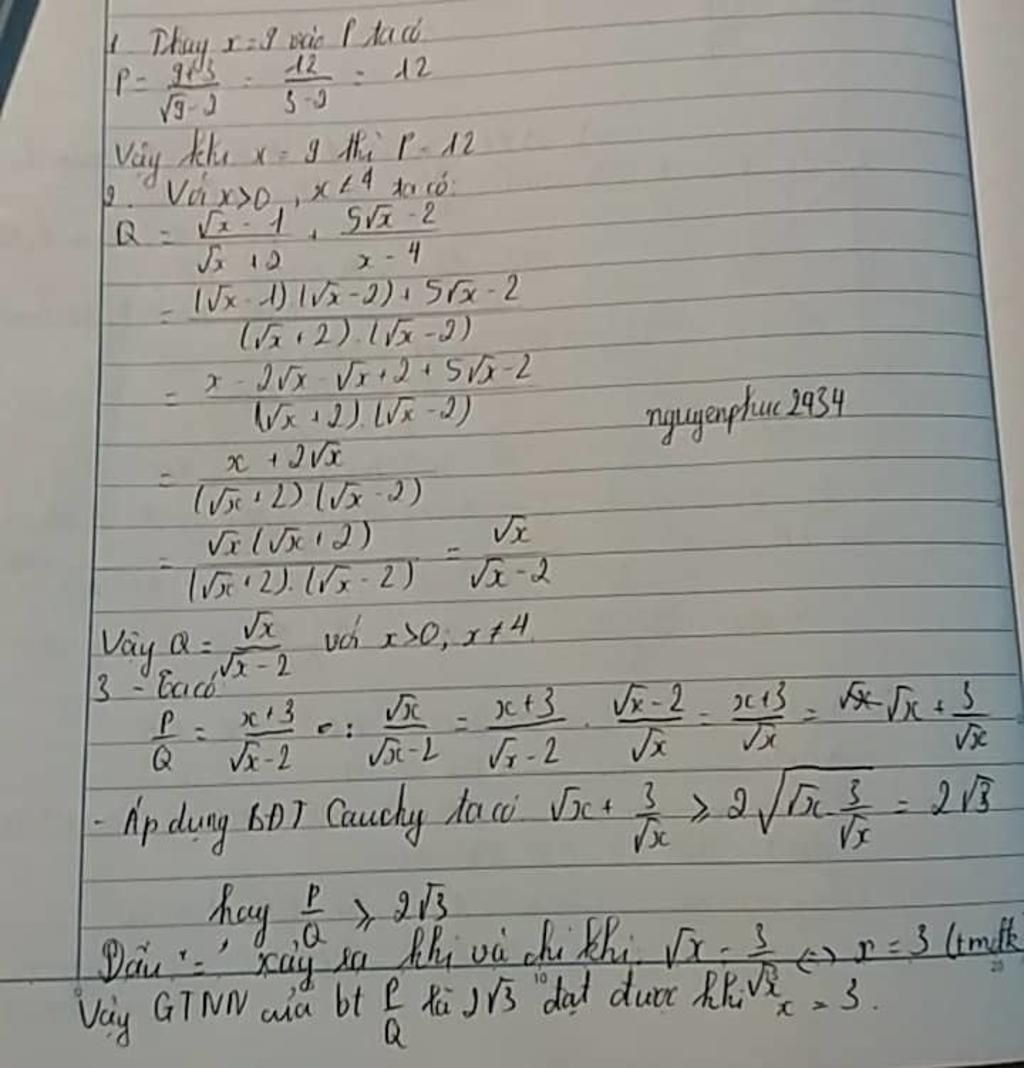 1. Thay x = 9 vào P ta có
P = \frac{9+3}{\sqrt{9}-2} = \frac{12}{3-2} = 12
Vậy khi x = 9 thì P = 12
2. Với x>0, x ≠ 4 ta có:
Q = \frac{\sqrt{x}-1}{\sqrt{x}+2} + \frac{5\sqrt{x}-2}{x-4}
= \frac{(\sqrt{x}-1)(\sqrt{x}-2)+5\sqrt{x}-2}{(\sqrt{x}+2).(\sqrt{x}-2)}
= \frac{x-2\sqrt{x}-\sqrt{x}+2+5\sqrt{x}-2}{(\sqrt{x}+2).(\sqrt{x}-2)}
nguyenphuc2934
= \frac{x+2\sqrt{x}}{(\sqrt{x}+2)(\sqrt{x}-2)}
= \frac{\sqrt{x}(\sqrt{x}+2)}{(\sqrt{x}+2).(\sqrt{x}-2)} = \frac{\sqrt{x}}{\sqrt{x}-2}
Vậy Q = \frac{\sqrt{x}}{\sqrt{x}-2} với x>0; x ≠ 4
3 - Ta có
\frac{P}{Q} = \frac{x+3}{\sqrt{x}-2} : \frac{\sqrt{x}}{\sqrt{x}-2} = \frac{x+3}{\sqrt{x}-2} . \frac{\sqrt{x}-2}{\sqrt{x}} = \frac{x+3}{\sqrt{x}} = \sqrt{x} + \frac{3}{\sqrt{x}}
- Áp dụng BĐT Cauchy ta có \sqrt{x} + \frac{3}{\sqrt{x}} ≥ 2\sqrt{\sqrt{x}.\frac{3}{\sqrt{x}}} = 2\sqrt{3}
hay \frac{P}{Q} ≥ 2\sqrt{3}
Dấu "=" xảy ra khi và chỉ khi \sqrt{x} = \frac{3}{\sqrt{x}} <=> x = 3 (tmđk
Vậy GTNN của bt \frac{P}{Q} là 2\sqrt{3} đạt được khi x = 3.